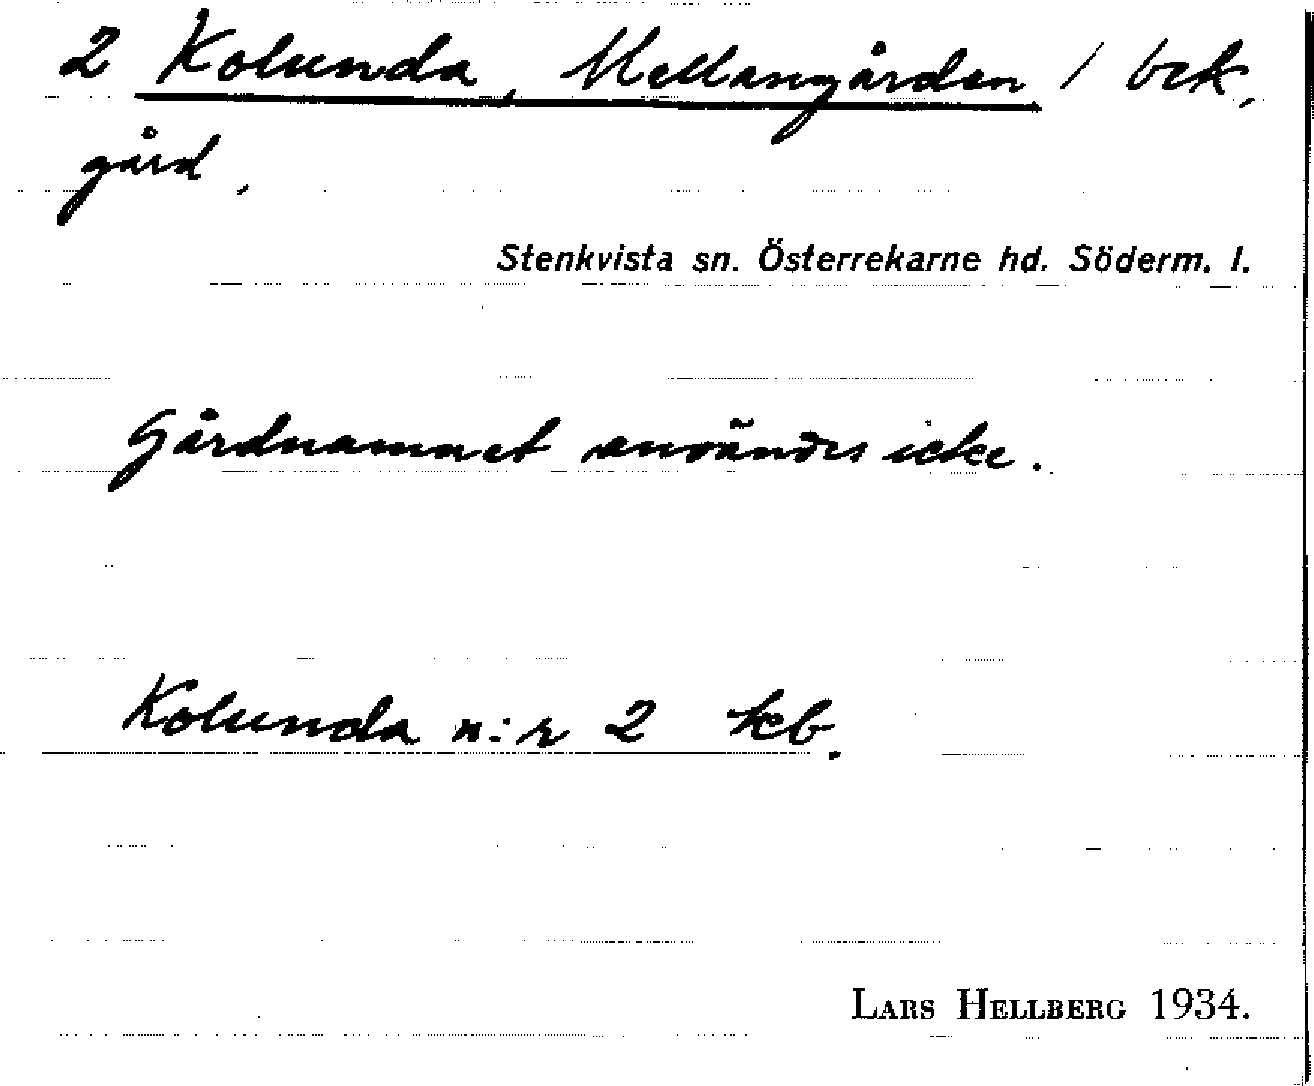 2 Kolunda, Mellangården / bek.
gård.
Stenkvista sn. Österrekarne hd. Söderm. l.
Gårdnamnet användes icke.
Kolunda n:r 2 kb.
LARS HELLBERG 1934.